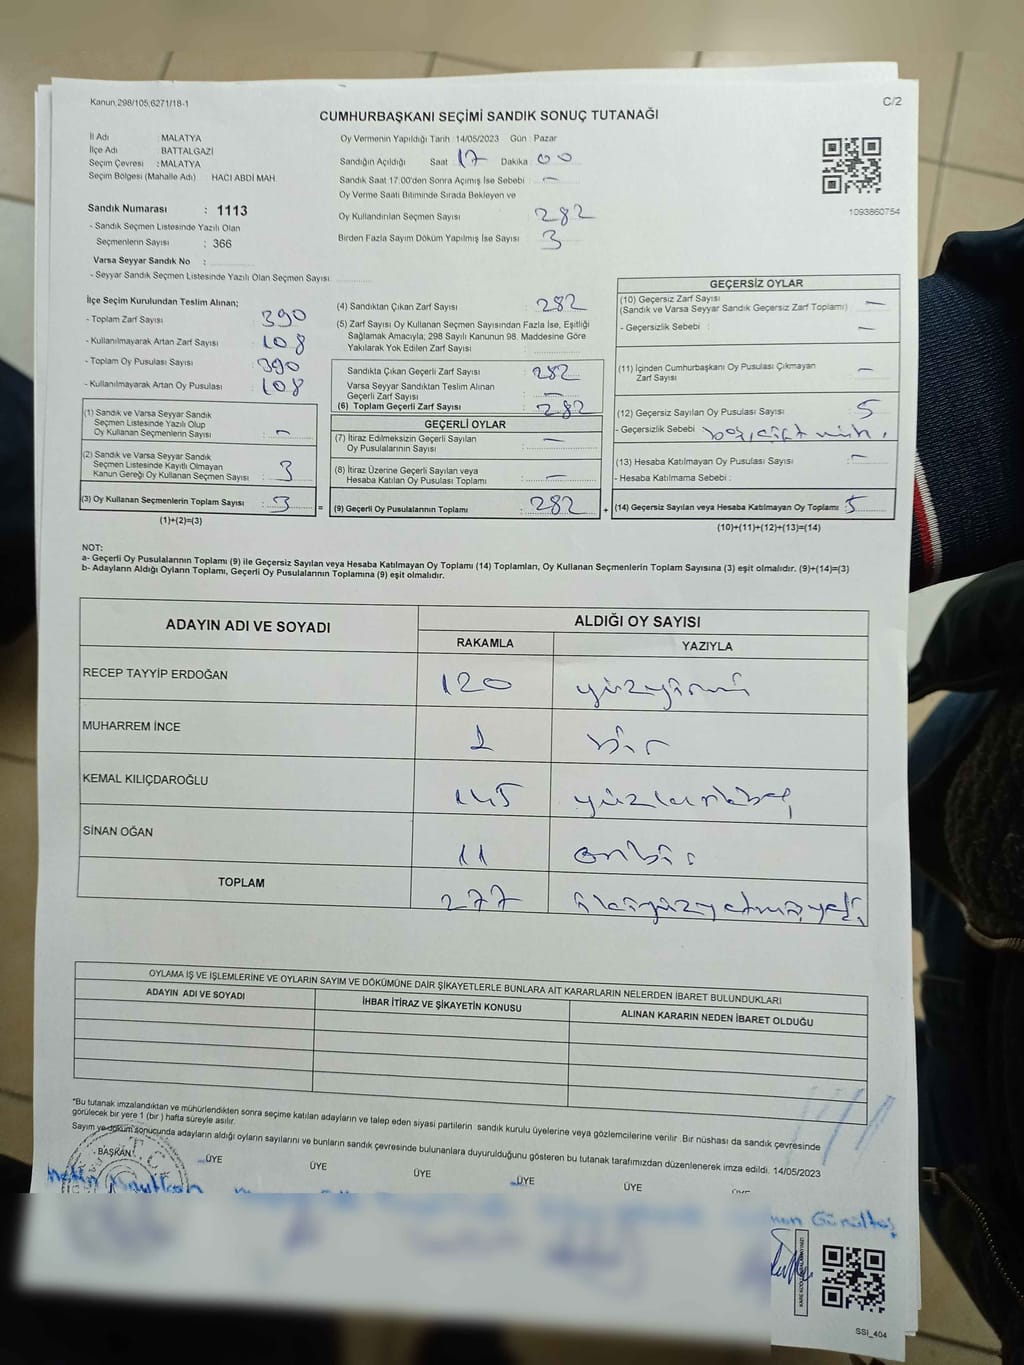 Kanun,298/105,6271/18-1
C/2
CUMHURBAŞKANI SEÇİMİ SANDIK SONUÇ TUTANAĞI
İl Adı MALATYA
İlçe Adı BATTALGAZİ
Seçim Çevresi : MALATYA
Seçim Bölgesi (Mahalle Adı) HACI ABDİ MAH
Sandık Numarası : 1113
- Sandık Seçmen Listesinde Yazılı Olan
Seçmenlerin Sayısı : 366
Varsa Seyyar Sandık No :
- Seyyar Sandık Seçmen Listesinde Yazılı Olan Seçmen Sayısı
Oy Vermenin Yapıldığı Tarih 14/05/2023 Gün : Pazar
Sandığın Açıldığı Saat 17 Dakika 00
Sandık Saat 17.00'den Sonra Açımış İse Sebebi : —
Oy Verme Saati Bitiminde Sırada Bekleyen ve
Oy Kullandırılan Seçmen Sayısı 282
Birden Fazla Sayım Döküm Yapılmış İse Sayısı 3
1093860754
İlçe Seçim Kurulundan Teslim Alınan;
- Toplam Zarf Sayısı 390
- Kullanılmayarak Artan Zarf Sayısı 108
- Toplam Oy Pusulası Sayısı 390
- Kullanılmayarak Artan Oy Pusulası 108
(1) Sandık ve Varsa Seyyar Sandık
Seçmen Listesinde Yazılı Olup
Oy Kullanan Seçmenlerin Sayısı : —
(2) Sandık ve Varsa Seyyar Sandık
Seçmen Listesinde Kayıtlı Olmayan
Kanun Gereği Oy Kullanan Seçmen Sayısı : 3
(3) Oy Kullanan Seçmenlerin Toplam Sayısı : 3
(1)+(2)=(3)
(4) Sandıktan Çıkan Zarf Sayısı : 282
(5) Zarf Sayısı Oy Kullanan Seçmen Sayısından Fazla İse, Eşitliği
Sağlamak Amacıyla, 298 Sayılı Kanunun 98. Maddesine Göre
Yakılarak Yok Edilen Zarf Sayısı :
Sandıkta Çıkan Geçerli Zarf Sayısı : 282
Varsa Seyyar Sandıktan Teslim Alınan
Geçerli Zarf Sayısı : —
(6) Toplam Geçerli Zarf Sayısı : 282
GEÇERLİ OYLAR
(7) İtiraz Edilmeksizin Geçerli Sayılan
Oy Pusulalarının Sayısı : —
(8) İtiraz Üzerine Geçerli Sayılan veya
Hesaba Katılan Oy Pusulası Toplamı : —
= (9) Geçerli Oy Pusulalarının Toplamı : 282 +
GEÇERSİZ OYLAR
(10) Geçersiz Zarf Sayısı
(Sandık ve Varsa Seyyar Sandık Geçersiz Zarf Toplamı) : —
- Geçersizlik Sebebi : —
(11) İçinden Cumhurbaşkanı Oy Pusulası Çıkmayan
Zarf Sayısı : —
(12) Geçersiz Sayılan Oy Pusulası Sayısı : 5
- Geçersizlik Sebebi : boş, çift müh.
(13) Hesaba Katılmayan Oy Pusulası Sayısı : —
- Hesaba Katılmama Sebebi :
(14) Geçersiz Sayılan veya Hesaba Katılmayan Oy Toplamı : 5
(10)+(11)+(12)+(13)=(14)
NOT:
a- Geçerli Oy Pusulalarının Toplamı (9) ile Geçersiz Sayılan veya Hesaba Katılmayan Oy Toplamı (14) Toplamları, Oy Kullanan Seçmenlerin Toplam Sayısına (3) eşit olmalıdır. (9)+(14)=(3)
b- Adayların Aldığı Oyların Toplamı, Geçerli Oy Pusulalarının Toplamına (9) eşit olmalıdır.
ADAYIN ADI VE SOYADI ALDIĞI OY SAYISI
RAKAMLA YAZIYLA
RECEP TAYYİP ERDOĞAN 120 yüzyirmi
MUHARREM İNCE 1 bir
KEMAL KILIÇDAROĞLU 145 yüzkırkbeş
SİNAN OĞAN 11 onbir
TOPLAM 277 ikiyüzyetmişyedi
OYLAMA İŞ VE İŞLEMLERİNE VE OYLARIN SAYIM VE DÖKÜMÜNE DAİR ŞİKAYETLERLE BUNLARA AİT KARARLARIN NELERDEN İBARET BULUNDUKLARI
ADAYIN ADI VE SOYADI İHBAR İTİRAZ VE ŞİKAYETİN KONUSU ALINAN KARARIN NEDEN İBARET OLDUĞU
*Bu tutanak imzalandıktan ve mühürlendikten sonra seçime katılan adayların ve talep eden siyasi partilerin sandık kurulu üyelerine veya gözlemcilerine verilir. Bir nüshası da sandık çevresinde
görülecek bir yere 1 (bir ) hafta süreyle asılır.
Sayım ve döküm sonucunda adayların aldığı oyların sayılarını ve bunların sandık çevresinde bulunanlara duyurulduğunu gösteren bu tutanak tarafımızdan düzenlenerek imza edildi. 14/05/2023
BAŞKAN ÜYE ÜYE ÜYE ÜYE ÜYE ÜYE
T.C.
SSI_404